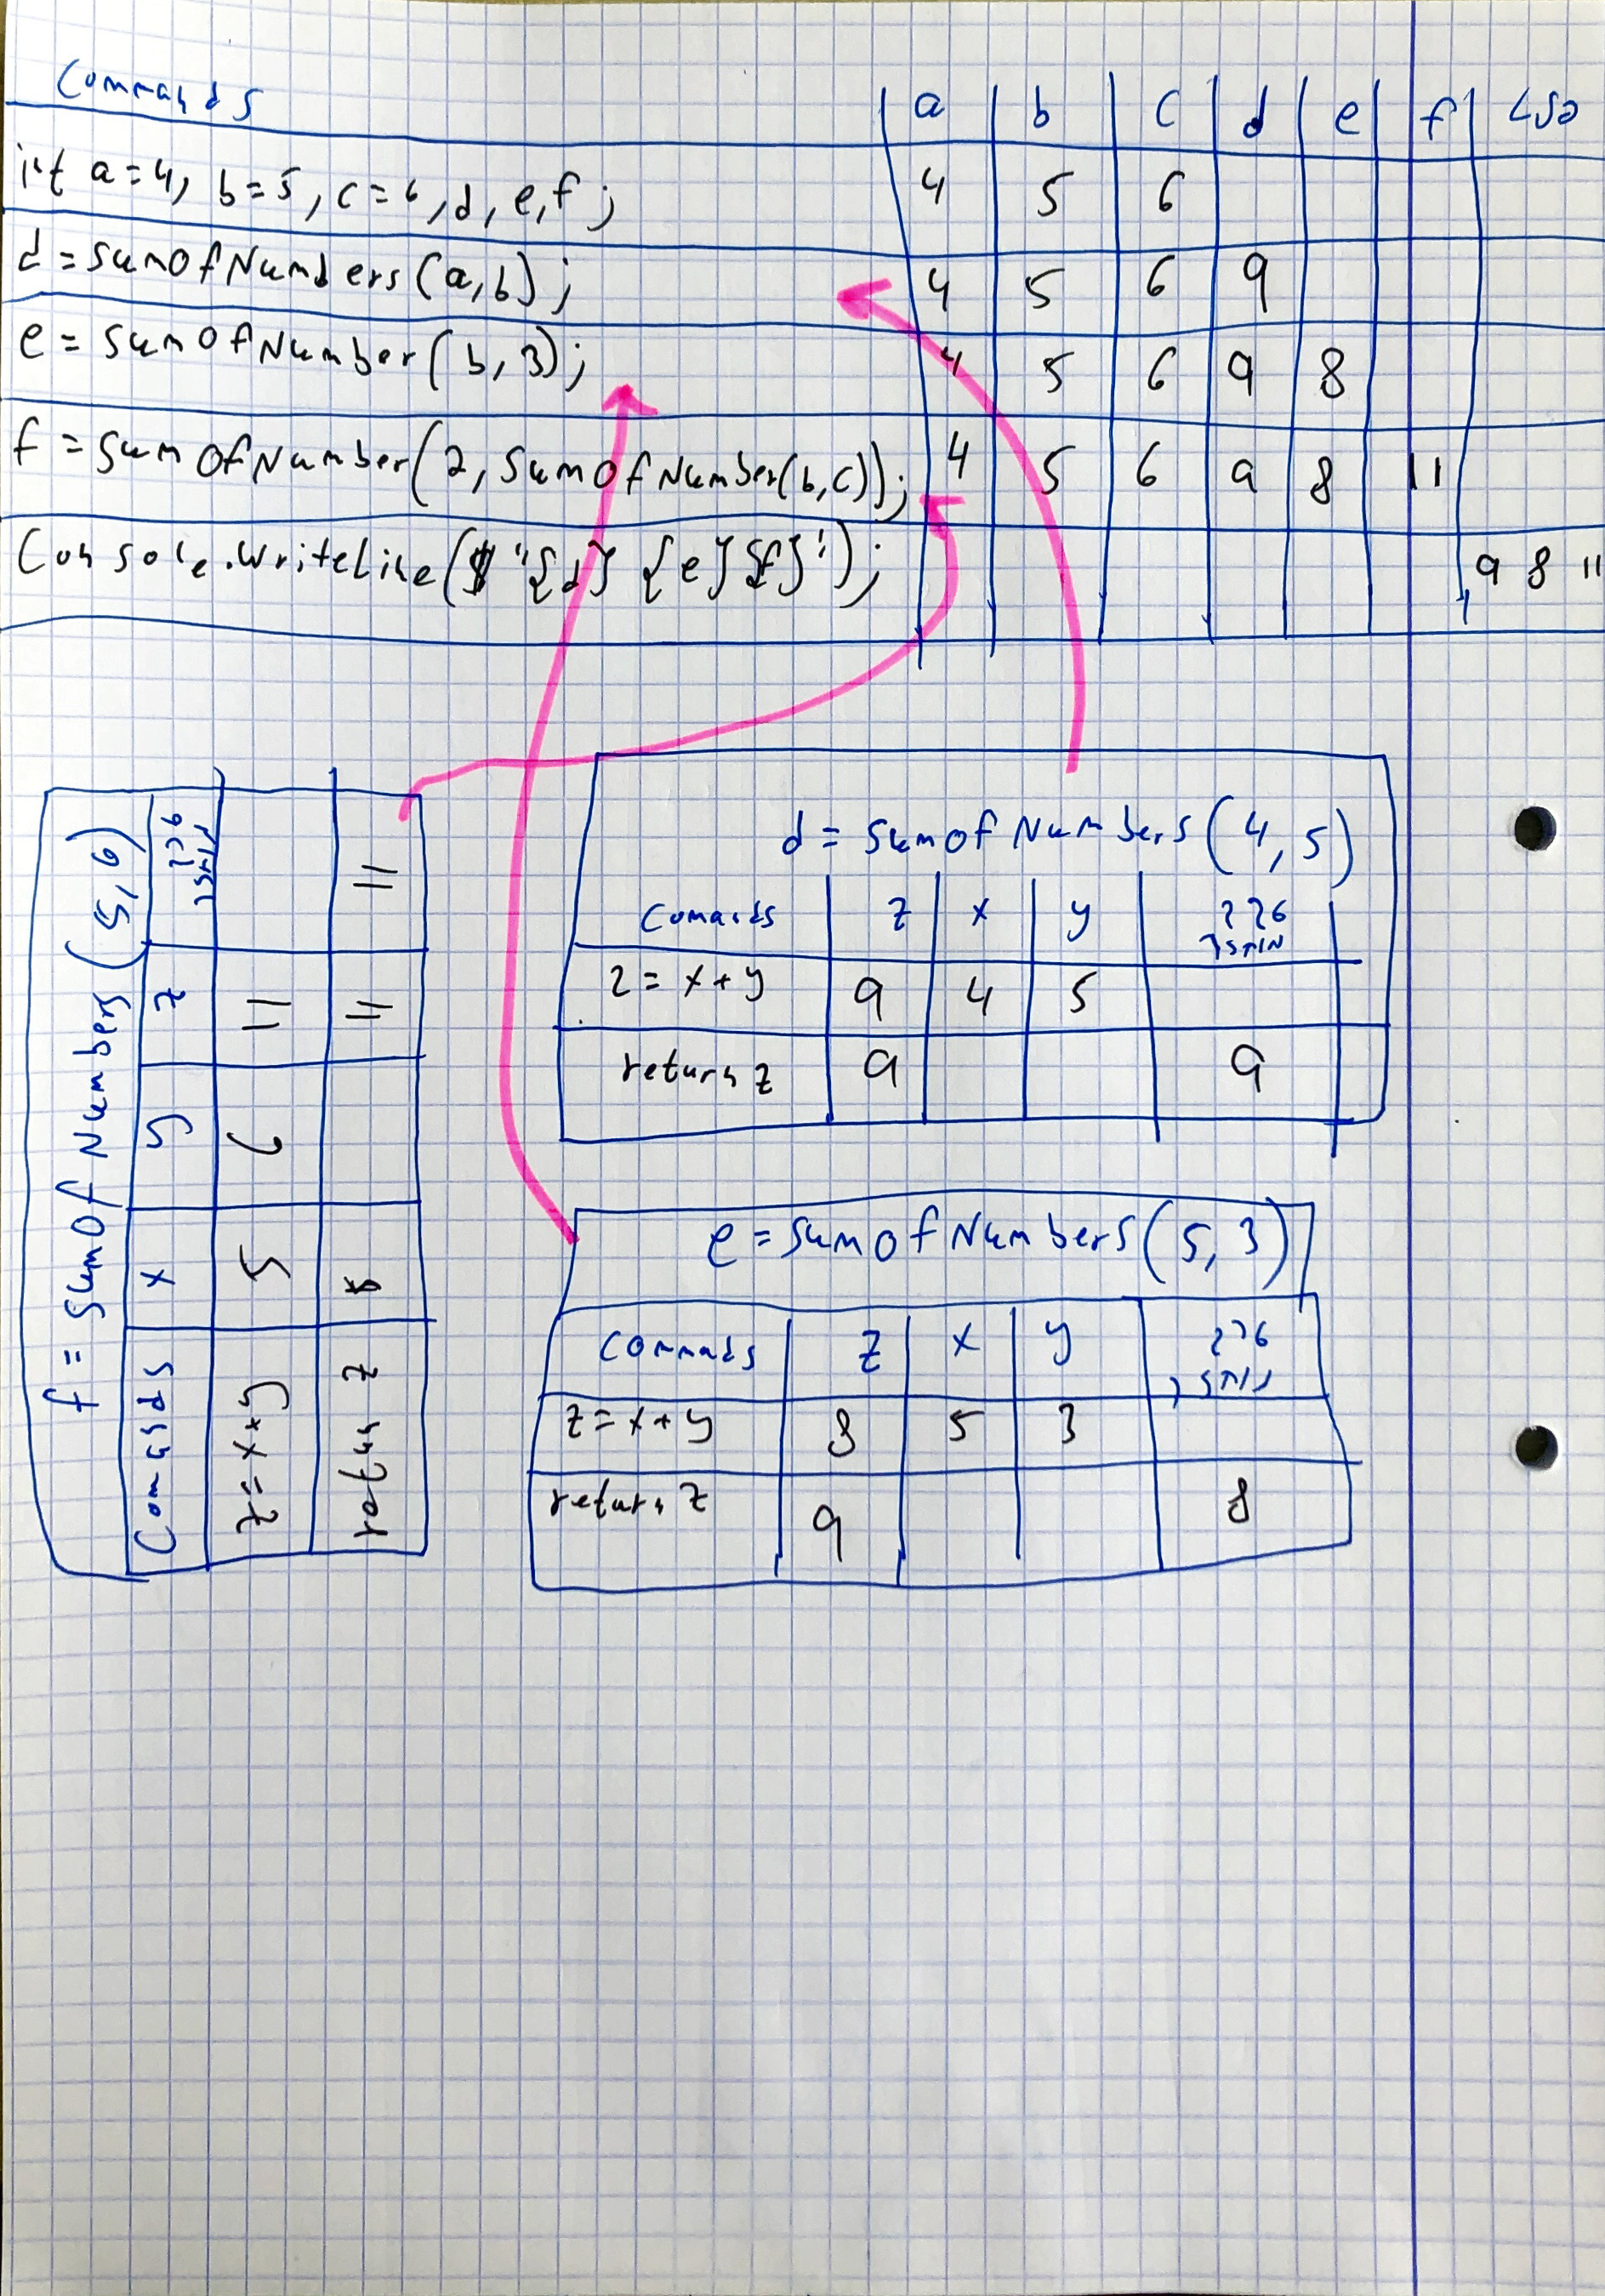 Commands a b c d e f פלט
int a=4, b=5, c=6, d, e, f; 4 5 6
d = sumOfNumbers(a,b); 4 5 6 9
e = sumOfNumber(b,3); 4 5 6 9 8
f = sumOfNumber(2, sumOfNumber(b,c)); 4 5 6 9 8 11
Console.WriteLine($"{d} {e} {f}"); 9 8 11
d = sumOfNumbers(4,5)
Comands z x y ערך
z = x+y 9 4 5
return z 9 9
e = sumOfNumbers(5,3)
Commads z x y ערך
z = x+y 8 5 3
return z 9 8
f = sumOfNumbers(5,6)
Comands x y z ערך
z = x+y 5 6 11
return z 11 11